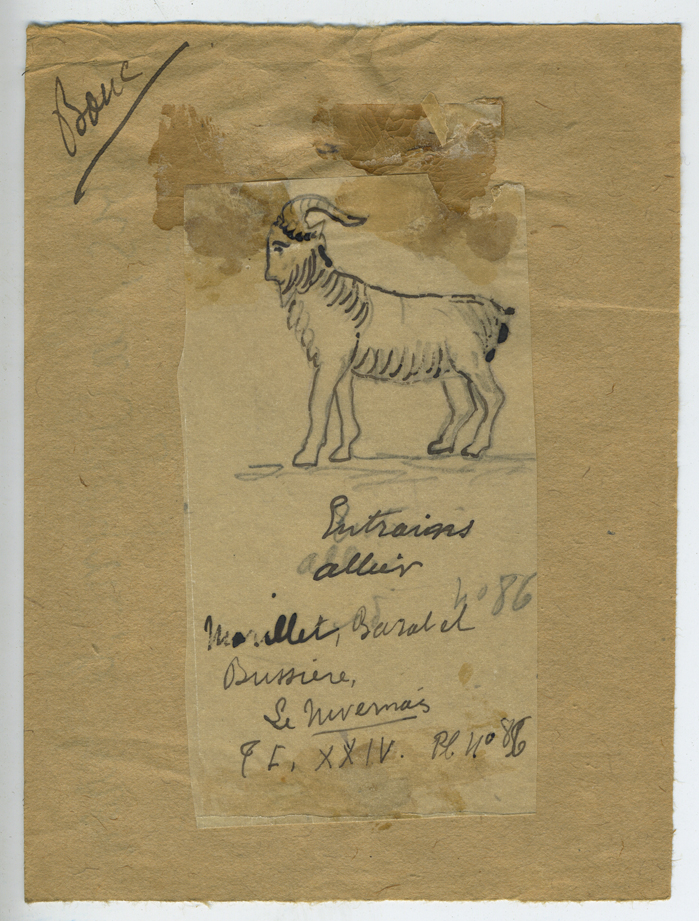 Bouc
Entrains
allier
n° 86
Morellet, Barat et
Bussière,
Le Nivernais
T I, XXIV. Pl n° 86